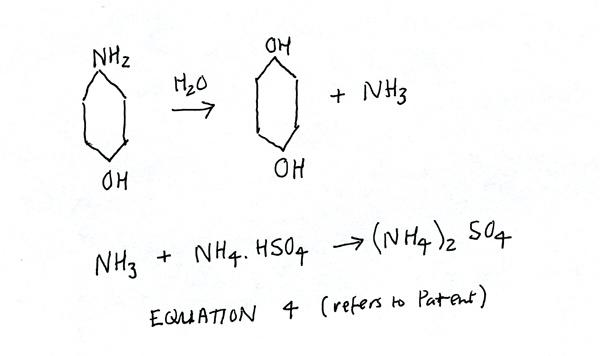 NH2 OH
H2O
+ NH3
OH OH
NH3 + NH4.HSO4 → (NH4)2 SO4
EQUATION 4 (refers to Patent)